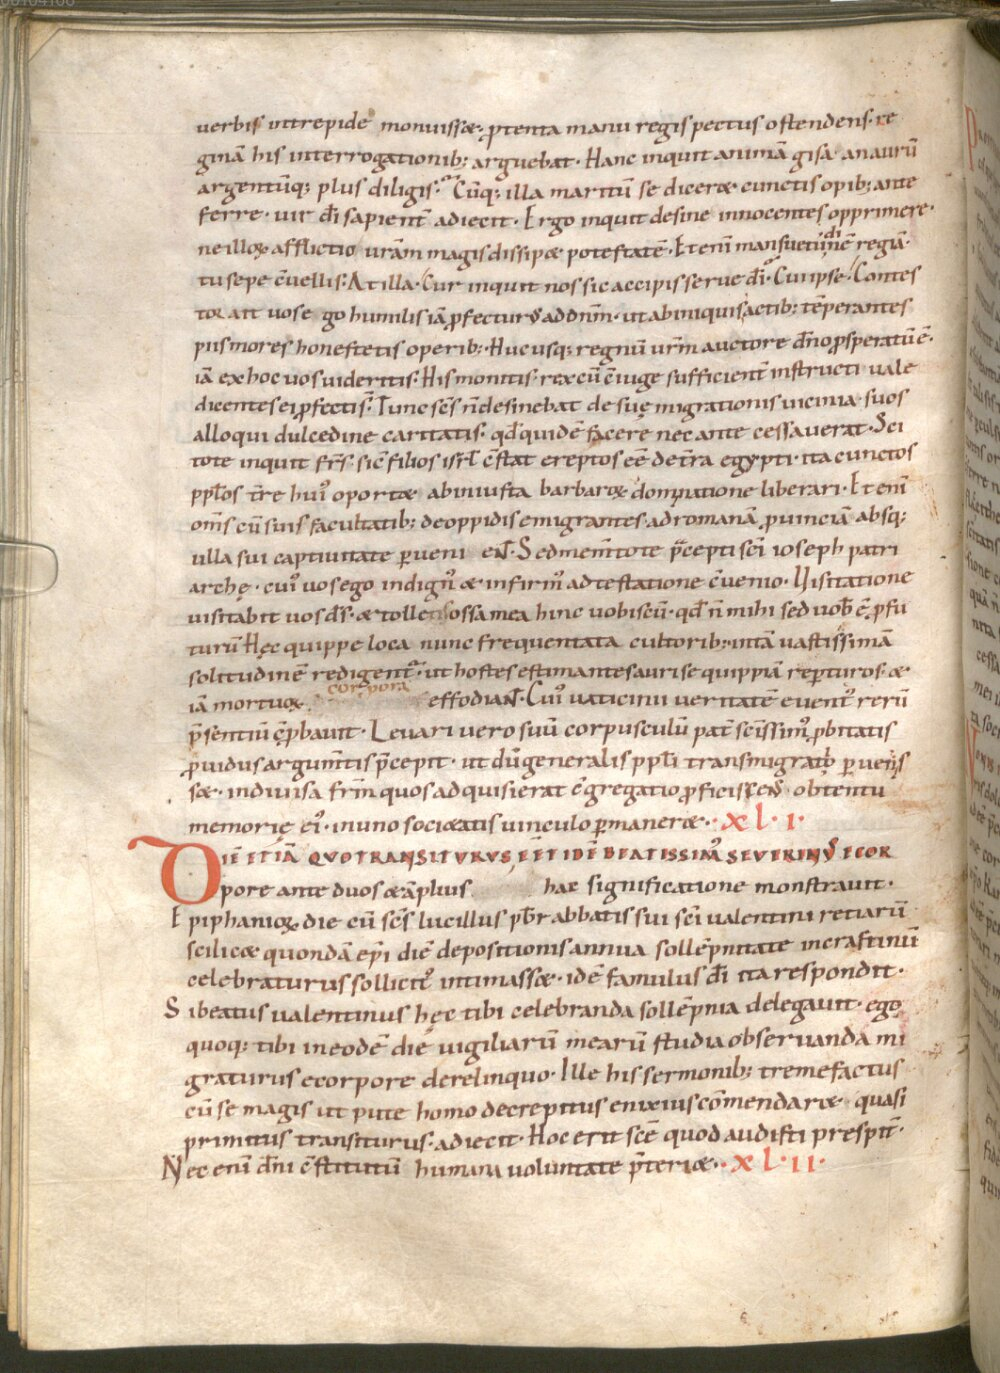 verbis intrepide monuissæ; ptenta manu regis pectus ostendens. re
ginā his interrogationib; arguebat. Hanc inquit animā gisa. an aurū
argentūq; plus diligis. Cūq; illa maritū se dicere cunctis opib; ante
ferre. vir dī sapient̄ adiecit. Ergo inquit desine innocentes opprimere.
ne illoꝝ afflictio vr̄am magis dissipæ potestatē. Et enī mansuetudinē regiā.
tu sepe c̄uellis. At illa. Cur inquit nos sic accipis serve dī. Cui ipse. Contes
tor ait vos ego humilis iā ꝓfecturꝰ ad dnm̄. ut ab iniquis actib; tēperantes
piis mores honestetis operib; Huc usq; regnū vr̄m auctore dn̄o ꝓsperatū ē.
iā ex hoc vos videritis. His monitis. rex cū c̄iuge sufficient̄ instructi vale
dicentes ei ꝓfecti s̄. Tunc scs̄ n̄ desinebat de suę migrationis vicinia. suos
alloqui dulcedine caritatis. qd̄ quidē facere nec ante cessaverat. Sci
tote inquit frs̄. sic̄ filios isrl̄ c̄stat ereptos eē de tr̄a egypti. ita cunctos
ppl̄os tr̄re huiꝰ oportæ ab iniusta barbaroꝝ dominatione liberari. Et enī
oms̄ cū suis facultatib; de oppidis emigrantes. ad romanā ꝓvinciā absq;
ulla sui captivitate pveni eN̄t. Sed mem̄tote p̄cepti sci ioseph patri
archę. cuiꝰ vos ego indignꝰ æ infirmꝰ ad testatione c̄venio. Visitatione
visitabit vos ds̄. æ tolle ossa mea hinc vobiscū. qd̄ n̄ mihi sed vob̄ ē ꝓfu
turū. Hęc quippe loca nunc frequentata cultorib; intā vastissimā
solitudinē redigent̄. ut hostes estimantes auri se quippiā reperturos. æ
iā mortuoꝝ corpora effodiaN̄t. Cuiꝰ vaticinii veritatē eventꝰ rerū
p̄sentiū c̄pbavit. Levari vero suū corpusculū pat̄ sc̄issimꝰ ꝓbitatis
ꝓvidus argumt̄is p̄cepit. ut dū generalis ppl̄i transmigratio pvenis
sæ. indivisa frm̄ quos adquisierat c̄gregatio ꝓficiscens obtentu
memorię eiꝰ. in uno sociætatis vinculo pmaneræ. XL.I.
DIĒ ETIĀ QVO TRANSITVRVS EĒT IDĒ BEATISSIMꝰ SEVERINꝰ E COR
pore ante duos æ āplius hac significatione monstravit.
Epiphanioꝝ die cū scs̄ lucillus pbr̄ abbatis sui sci valentini retiarū
scilicæ quondā ep̄i diē depositionis annua sollēpnitate in crastinū
celebraturus sollicitꝰ intimassæ. idē famulus dī ita respondit.
Si beatus valentinus hęc tibi celebranda sollēpnia delegavit. ego
quoq; tibi in eodē die vigiliarū mearū studia observanda mi
graturus e corpore derelinquo. Ille his sermonib; tremefactus
cū se magis ut pute homo decrepitus enixius cōmendaræ quasi
primitus transiturus. adiecit. Hoc erit scē quod audisti prespit̄.
Nec enī dn̄i c̄stitutū humana voluntate p̄teriæ. XL.II.